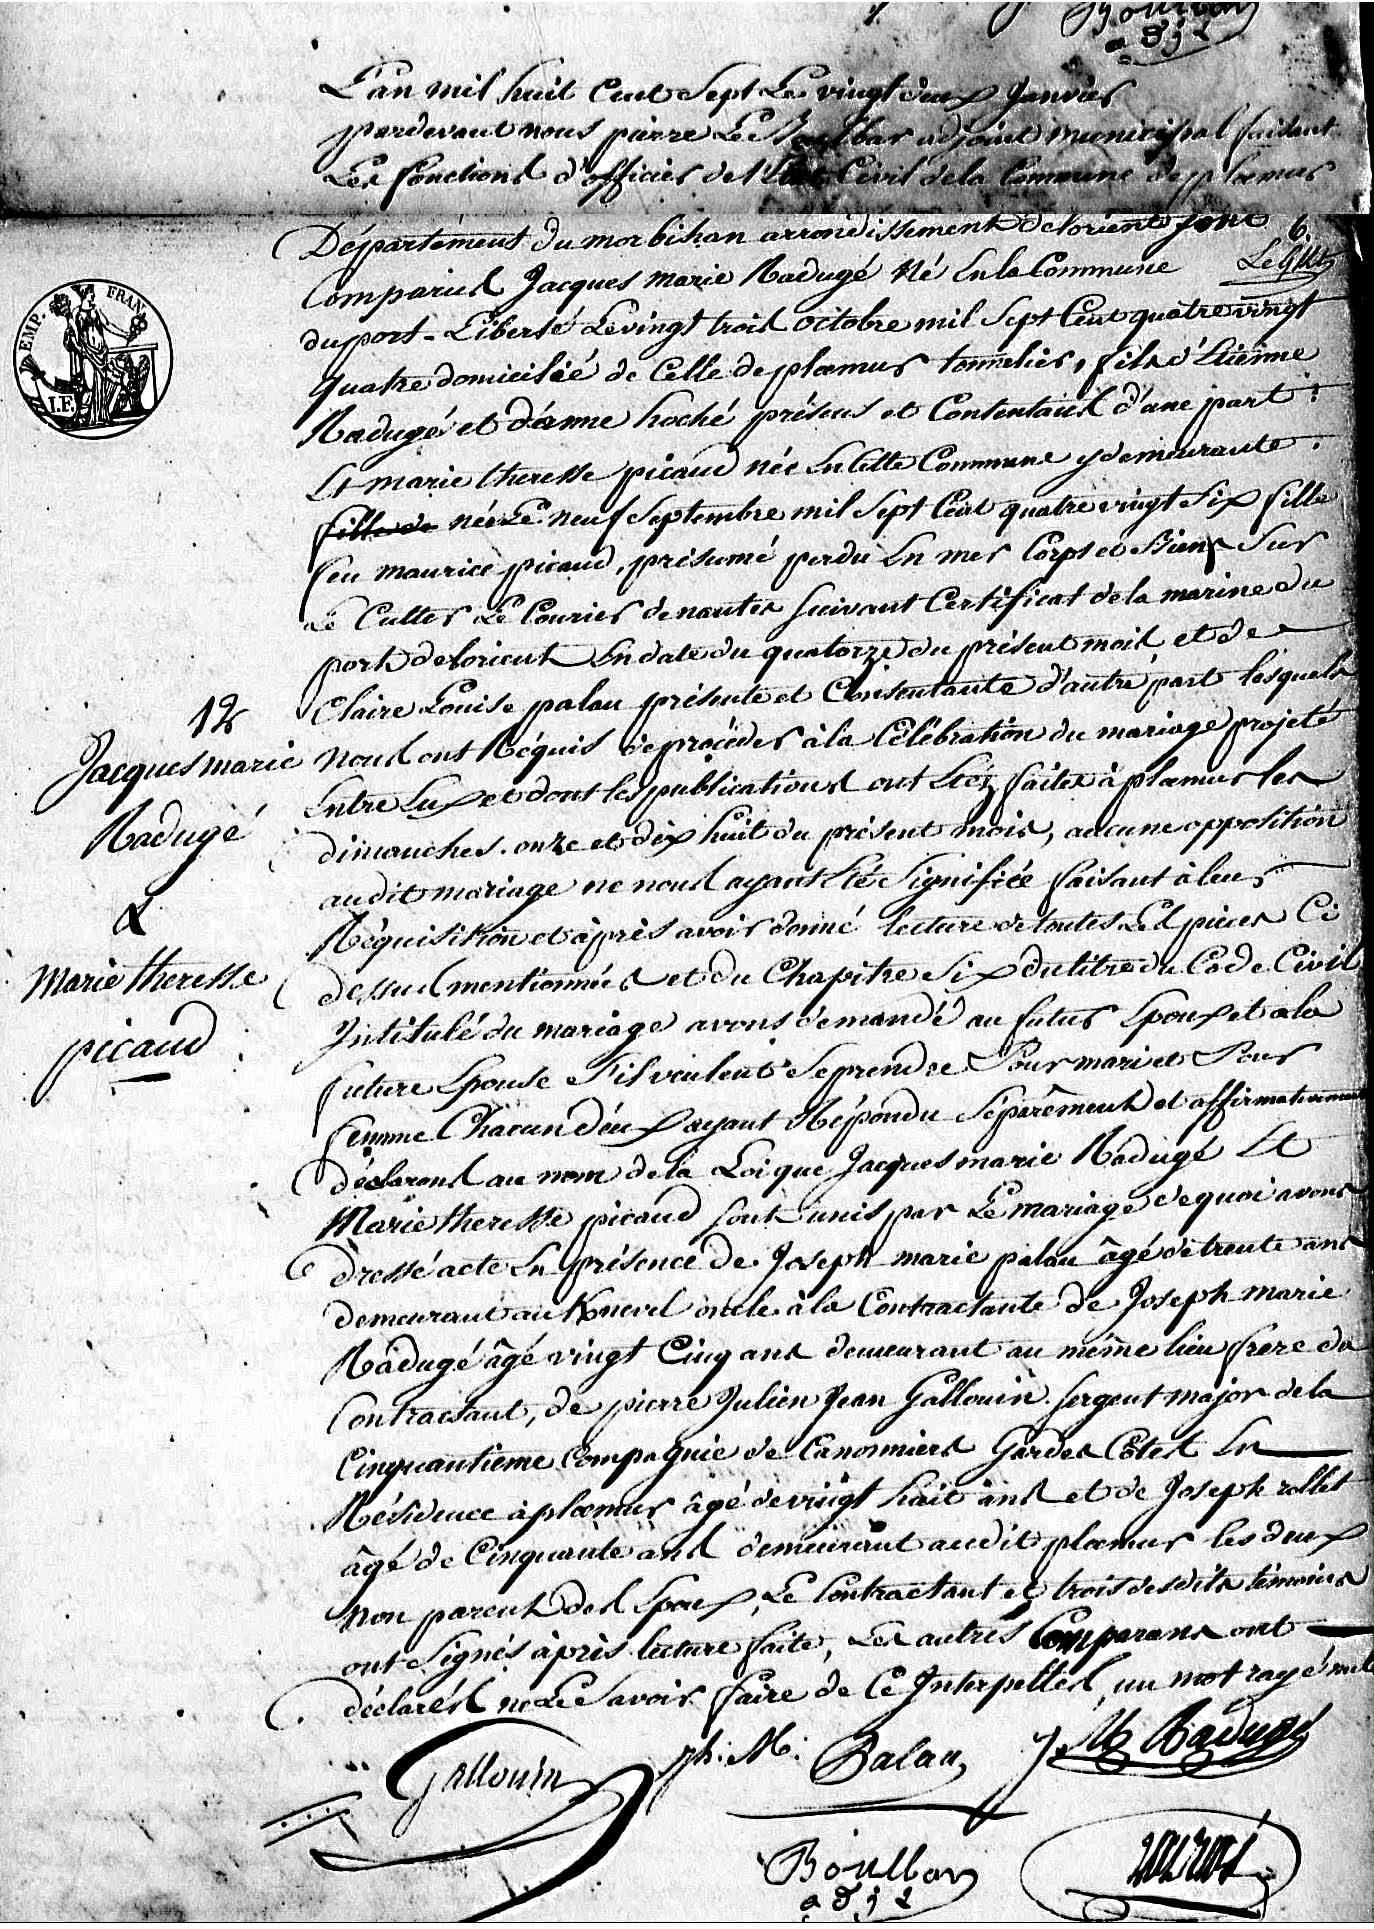 Boulbar
adj t
L'an mil huit Cent Sept Le vingt deux Janvier
pardevant nous pierre Le Boulbar adjoint municipal faisant
Les fonctions d'officier de l'Etat Civil de la Commune de ploemur
Département du morbihan arrondissement de lorient sont
6.
Comparus Jacques marie Radugé Né En la Commune
du port-Liberté Le vingt trois octobre mil Sept Cent quatre vingt
EMP. FRAN
I.F.
quatre domicilié de Celle de ploemur tonnelier, fils d'Etienne
Radugé et d'anne hoché présens et Contentans d'une part :
Et marie theresse picaud née En Cette Commune y demeurante.
fille de née Le neuf Septembre mil Sept Cent quatre vingt Six fille
feu maurice picaud, présumé perdu En mer Corps et Biens Sur
Le Cutter Le Courier de nantes Suivant Certificat de la marine du
port de lorient En date du quatorze du présent mois et de
Claire Louise palau présente et Consentante d'autre part lesquels
12
Jacques marie
Radugé
&
marie theresse
picaud
nous ont Réquis de procéder à la Célébration du mariage projeté
Entre Eux et dont les publications ont Etez faites à ploemur les
dimanches onze et dix huit du présent mois, aucune opposition
au dit mariage ne nous ayant Eté Signifiée faisant à leur
Réquisition et après avoir donné lecture de toutes Les pieces Ci
dessus mentionnées et du Chapitre Six du titre du Code Civil
Intitulé du mariage avons demandé au futur Epoux et a la
future Epouse s'ils veulent Se prendre Pour mari et Pour
femme Chacun d'eux ayant Répondu Séparément et affirmativement
déclarons au nom de la Loi que Jacques marie Radugé Et
Marie theresse picaud sont unis par Le mariage de quoi avons
dressé acte En présence de Joseph marie palau âgé de trente ans
demeurant au oncle à la Contractante de Joseph marie
Radugé âgé vingt Cinq ans demeurant au même lieu frere du
Contractant, de pierre Julien Jean Gallouin Sergent major de la
Cinquantieme Compagnie de Canonniers Gardes Côtes En
Résidence à ploemur âgé de vingt huit ans et de Joseph rollet
âgé de Cinquante ans demeurant audit ploemur les deux
non parent des Epoux, Le Contractant et trois desdits témoins
ont Signés après lecture faite, Les autres Comparans ont
déclarés ne Le Savoir faire de Ce Interpellés, un mot rayé nul
Gallouin
jph. M. Palau
J. M Radugé
Boulbar
adj t